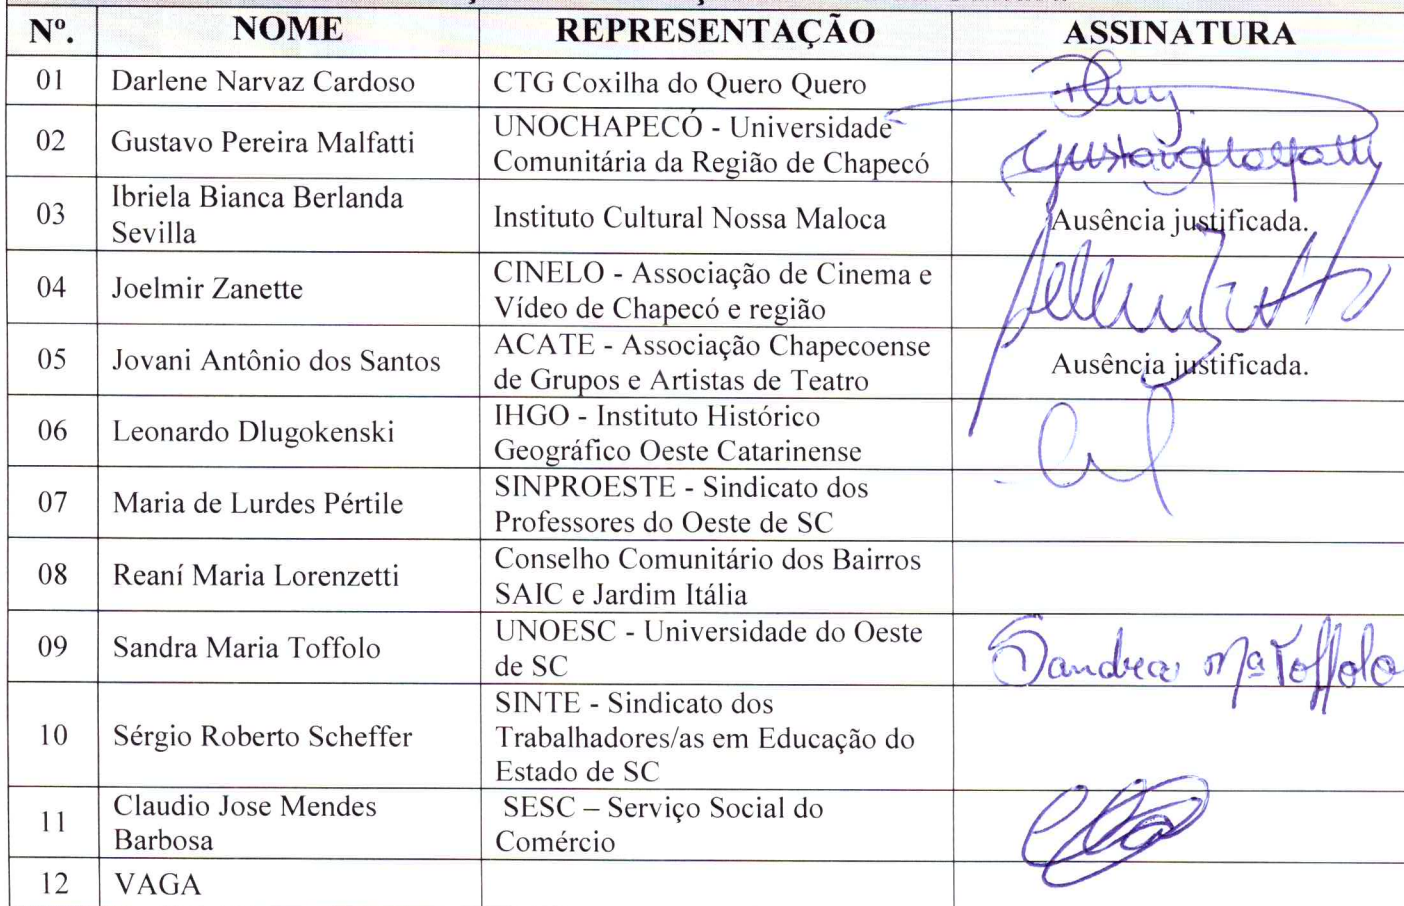 Nº. NOME REPRESENTAÇÃO ASSINATURA
01 Darlene Narvaz Cardoso CTG Coxilha do Quero Quero
02 Gustavo Pereira Malfatti UNOCHAPECÓ - Universidade
Comunitária da Região de Chapecó
03 Ibriela Bianca Berlanda
Sevilla Instituto Cultural Nossa Maloca Ausência justificada.
04 Joelmir Zanette CINELO - Associação de Cinema e
Vídeo de Chapecó e região
05 Jovani Antônio dos Santos ACATE - Associação Chapecoense
de Grupos e Artistas de Teatro Ausência justificada.
06 Leonardo Dlugokenski IHGO - Instituto Histórico
Geográfico Oeste Catarinense
07 Maria de Lurdes Pértile SINPROESTE - Sindicato dos
Professores do Oeste de SC
08 Reaní Maria Lorenzetti Conselho Comunitário dos Bairros
SAIC e Jardim Itália
09 Sandra Maria Toffolo UNOESC - Universidade do Oeste
de SC Sandra Mª Toffolo
10 Sérgio Roberto Scheffer SINTE - Sindicato dos
Trabalhadores/as em Educação do
Estado de SC
11 Claudio Jose Mendes
Barbosa SESC – Serviço Social do
Comércio
12 VAGA